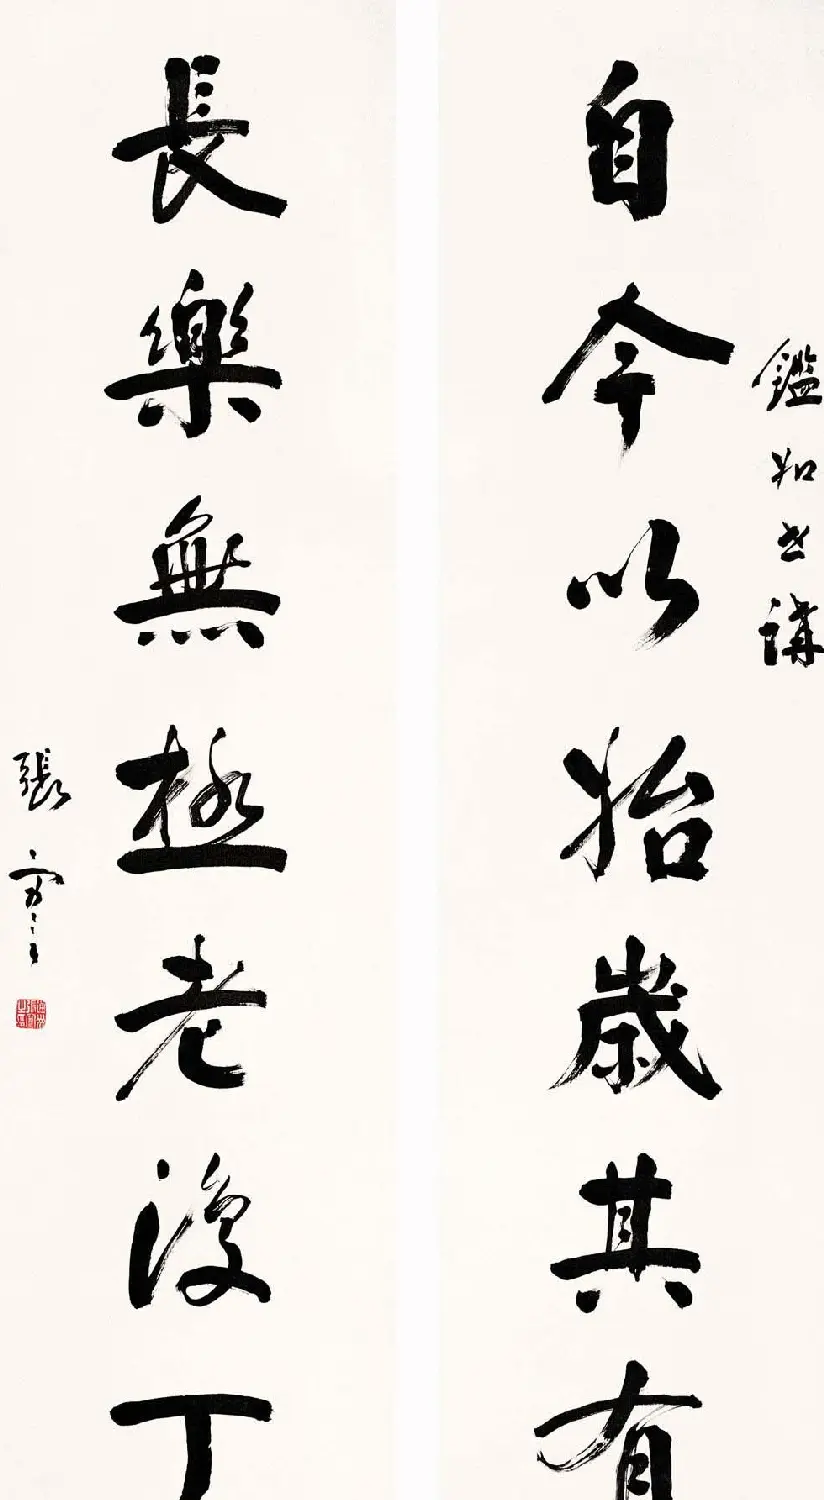 鑑如世講
自今以始歲其有
長樂無極老復丁
張謇